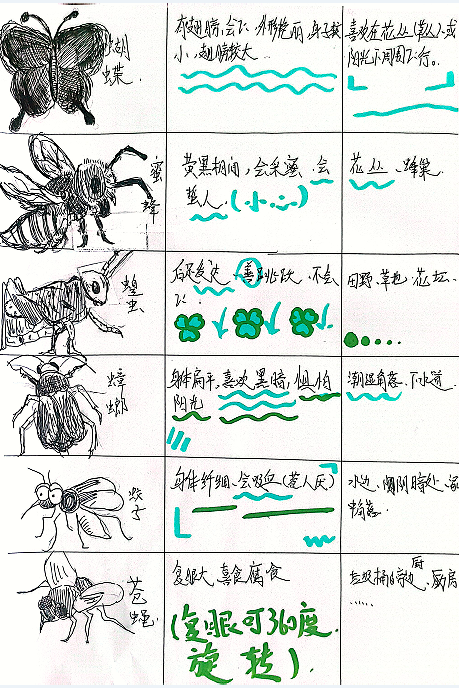 蝴
蝶.
有翅膀,会飞,外形艳丽,身子较
小,翅膀较大.
喜欢在花丛(草丛)或
阳光下周围飞行。
蜜
蜂
黄黑相间,会采蜜,会
蜇人.(小心)
花丛、蜂巢.
蝗
虫
后足发达、善跳跃、不会
飞.
田野、草地、花坛.
蟑
螂
身体扁平,喜欢黑暗,惧怕
阳光
潮湿角落、下水道
蚊
子
身体纤细、会吸血(惹人厌)
水边、阴暗处、
角落.
苍
蝇.
复眼大、喜食腐食
(复眼可360度.
旋转).
垃圾桶旁边、厨房
......